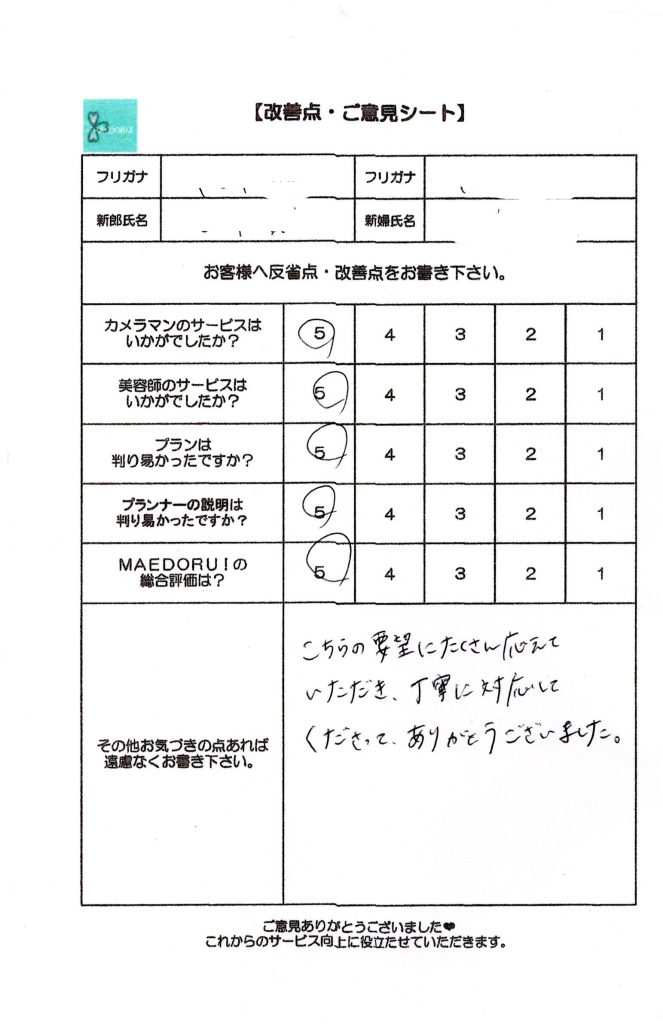 【改善点・ご意見シート】
フリガナ
フリガナ
新郎氏名
新婦氏名
お客様へ反省点・改善点をお書き下さい。
カメラマンのサービスは
いかがでしたか？
5 4 3 2 1
美容師のサービスは
いかがでしたか？
5 4 3 2 1
プランは
判り易かったですか？
5 4 3 2 1
プランナーの説明は
判り易かったですか？
5 4 3 2 1
ＭＡＥＤＯＲＵ！の
総合評価は？
5 4 3 2 1
その他お気づきの点あれば
遠慮なくお書き下さい。
こちらの要望にたくさん応えて
いただき、丁寧に対応して
くださって、ありがとうございました。
ご意見ありがとうございました❤
これからのサービス向上に役立たせていただきます。